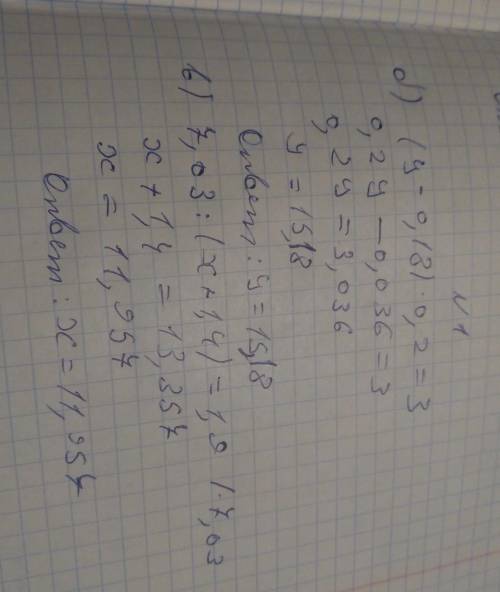 №1
а) (y - 0,18) · 0,2 = 3
0,2y - 0,036 = 3
0,2y = 3,036
y = 15,18
Ответ: y = 15,18
в) 7,03 : (x + 1,4) = 1,9 | · 7,03
x + 1,4 = 13,357
x = 11,957
Ответ: x = 11,957